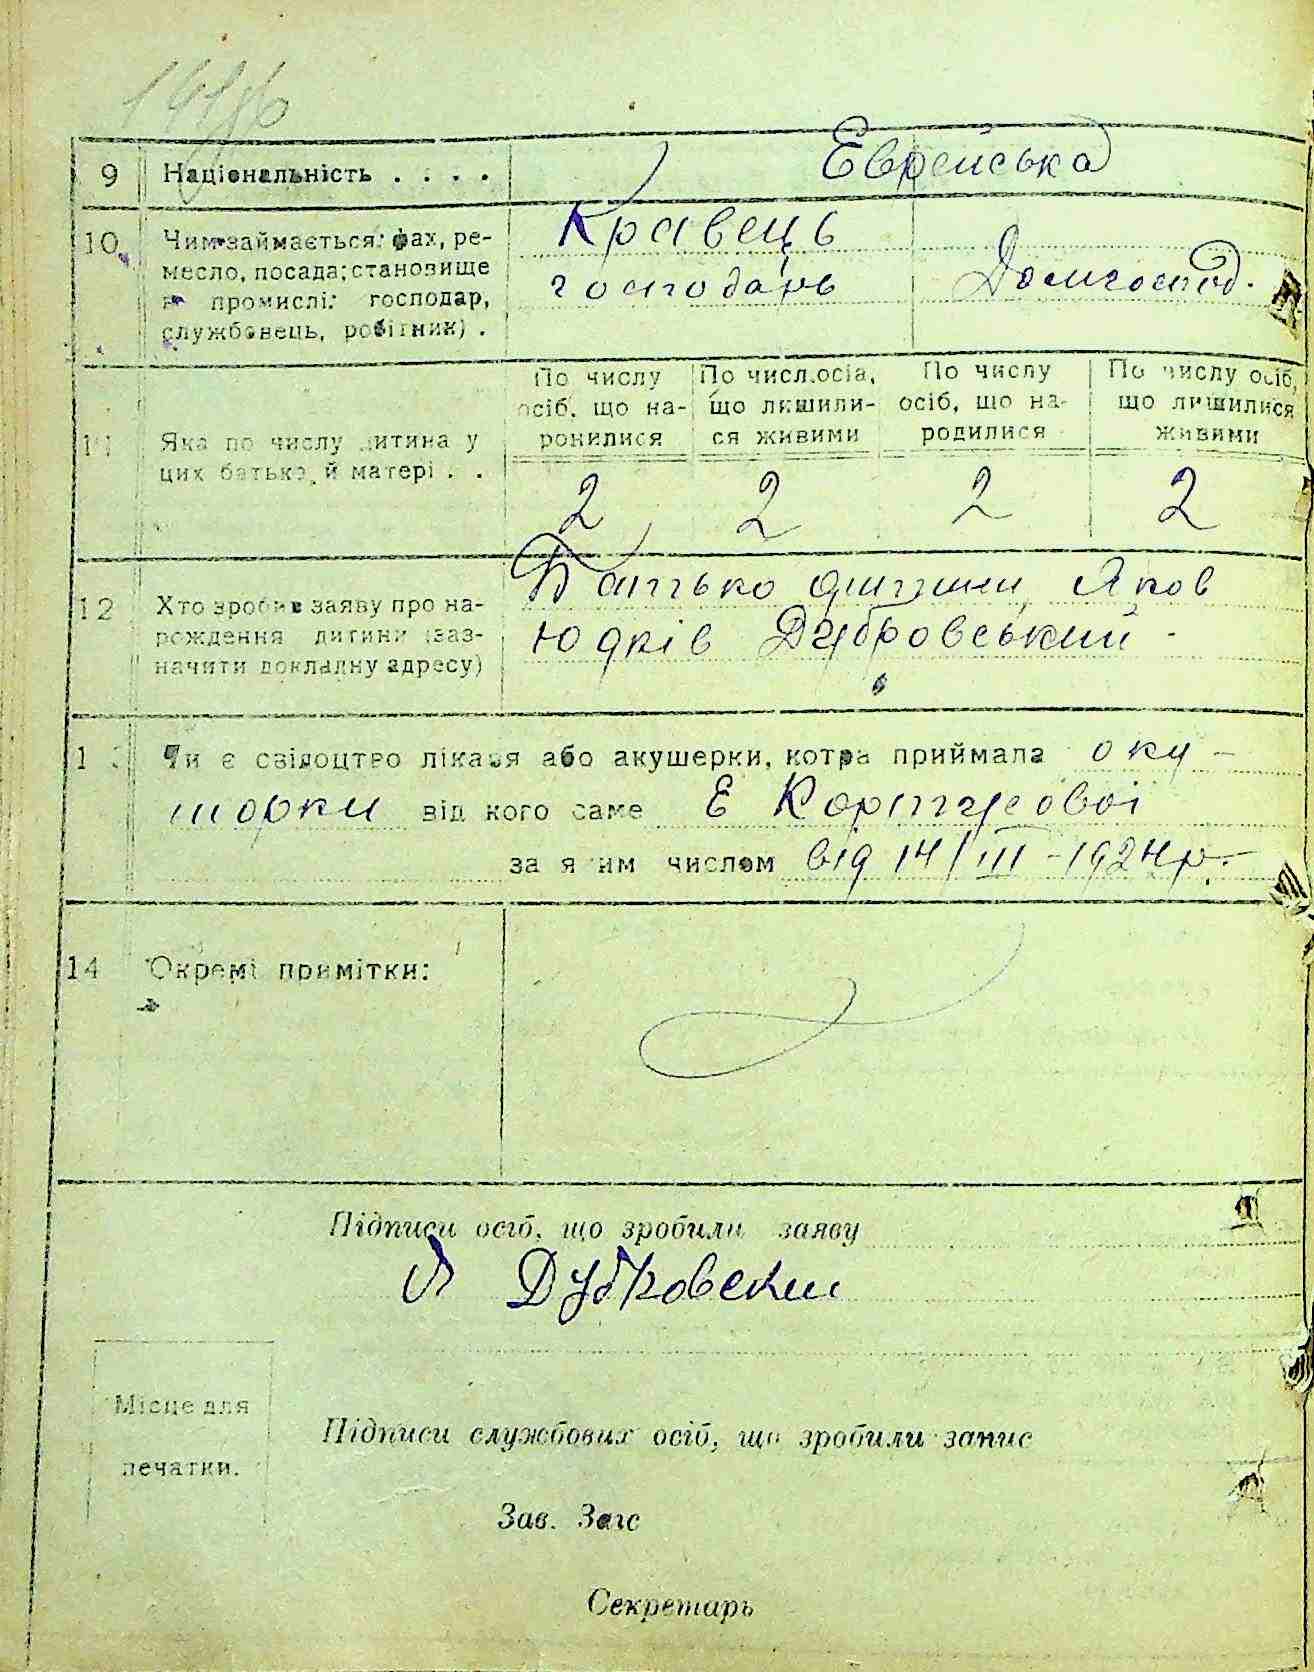 9 Національність . . . . Еврейська
10 Чим займається: фах, ре-
месло, посада; становище
в промислі: господар,
службовець, робітник) .
Кравець
господарь
Домгоспод.
11 Яка по числу дитина у
цих батька й матері . .
По числу
осіб, що на-
родилися
По числ.осіа,
що лишили-
ся живими
По числу
осіб, що на-
родилися
По числу осіб,
що лишилися
живими
2 2 2 2
12 Хто зробив заяву про на-
рождення дитини (заз-
начити докладну адресу)
Батько дитини Яков
Юдків Дубровський
13 Чи є свідоцтво лікаря або акушерки, котра приймала аку-
шорки від кого саме Е
за яким числом від 14/III-1924р.
14 Окремі примітки:
Підписи осіб, що зробили заяву
Я Дубровскии
Місце для
печатки.
Підписи службових осіб, що зробили запис
Зав. Загс
Секретарь